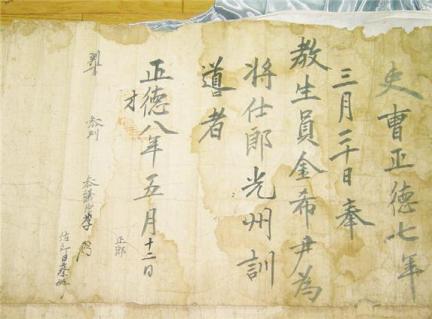 吏曹正德七年
三月二十日奉
教生員金希尹為
將仕郎光州訓
導者
正德八年五月十二日
才
判書
參判
參議臣李
正郎
佐郎臣